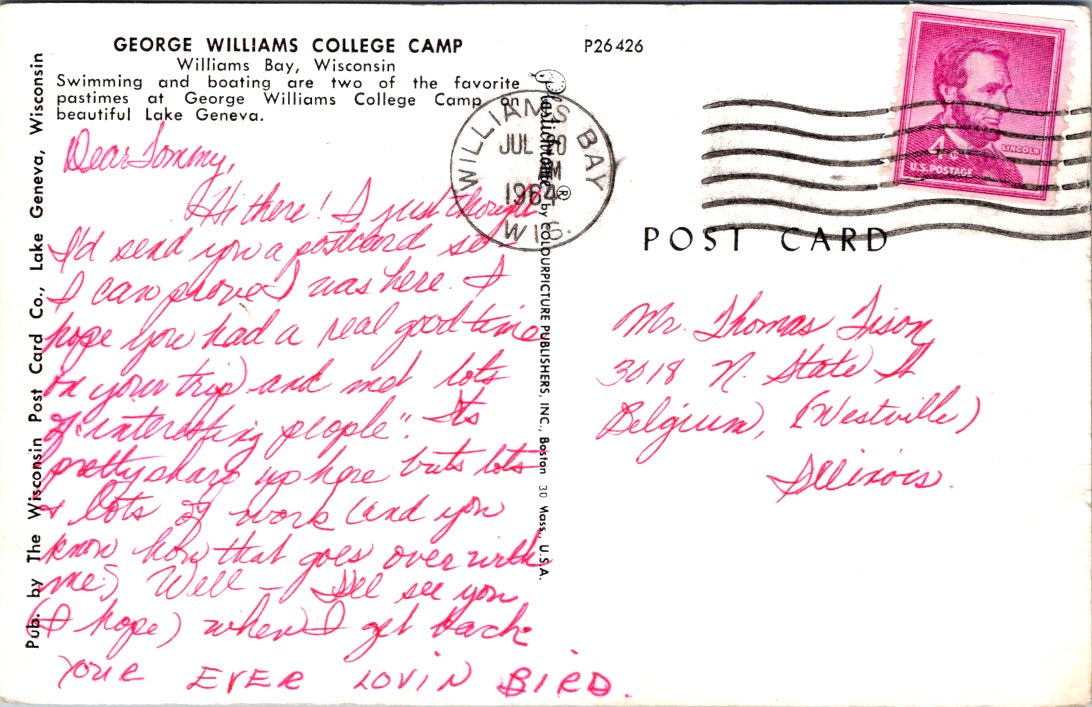 GEORGE WILLIAMS COLLEGE CAMP
Williams Bay, Wisconsin
Swimming and boating are two of the favorite
pastimes at George Williams College Camp on
beautiful Lake Geneva.
P26426
Pub. by The Wisconsin Post Card Co., Lake Geneva, Wisconsin
Plastichrome ® by COLOURPICTURE PUBLISHERS, INC., Boston 30 Mass., U.S.A.
WILLIAMS BAY
JUL
M
1964
WIS.
LINCOLN
4¢
U.S. POSTAGE
POST CARD
Dear Tommy,
Hi there! I just thought
I'd send you a postcard so
I can prove I was here. I
hope you had a real good time
on your trip and met lots
of "interesting people". Its
pretty sharp up here but its lots
& lots of work (and you
know how that goes over with
me) Well - I'll see you
(I hope) when I get back
YOUR EVER LOVIN BIRD.
Mr. Thomas Tison
3018 N. State St
Belgium, (Westville)
Illinois.